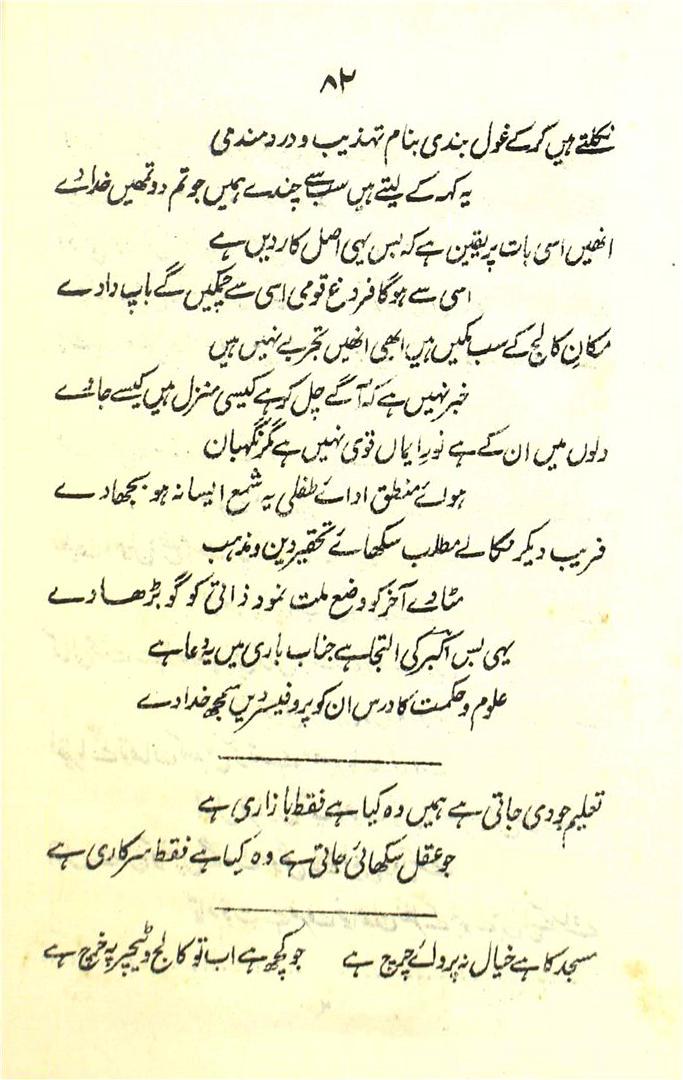 ۸۲
نکلتے ہیں کر کے غول بندی بنام تہذیب و دردمندی
یہ کہہ کے لیتے ہیں سب سے چندے ہمیں جو تم دو تمھیں خدا دے
انھیں اسی بات پر یقین ہے کہ بس یہی اصل کار دیں ہے
اسی سے ہوگا فروغ قومی اسی سے چمکیں گے باپ دادے
مکانِ کالج کے سب مکیں ہیں ابھی انھیں تجربے نہیں ہیں
خبر نہیں ہے کہ آگے چل کر ہے کیسی منزل ہیں کیسے جادے
دلوں میں ان کے ہے نورِ ایماں قوی نہیں ہے مگر نگہبان
ہوائے منطق ادائے طفلی یہ شمع ایسا نہ ہو بجھا دے
فریب دیکر نکالے مطلب سکھائے تحقیر دین و مذہب
مٹا دے آخر کو وضع ملت نمود ذاتی کو گو بڑھا دے
یہی بس اکبرؔ کی التجا ہے جناب باری میں یہ دعا ہے
علوم و حکمت کا درس ان کو پروفیسر دیں سمجھ خدا دے
تعلیم جو دی جاتی ہے ہمیں وہ کیا ہے فقط بازاری ہے
جو عقل سکھائی جاتی ہے وہ کیا ہے فقط سرکاری ہے
مسجد کا ہے خیال نہ پروائے چرچ ہے جو کچھ ہے اب تو کالج و ٹیچر پہ خرچ ہے